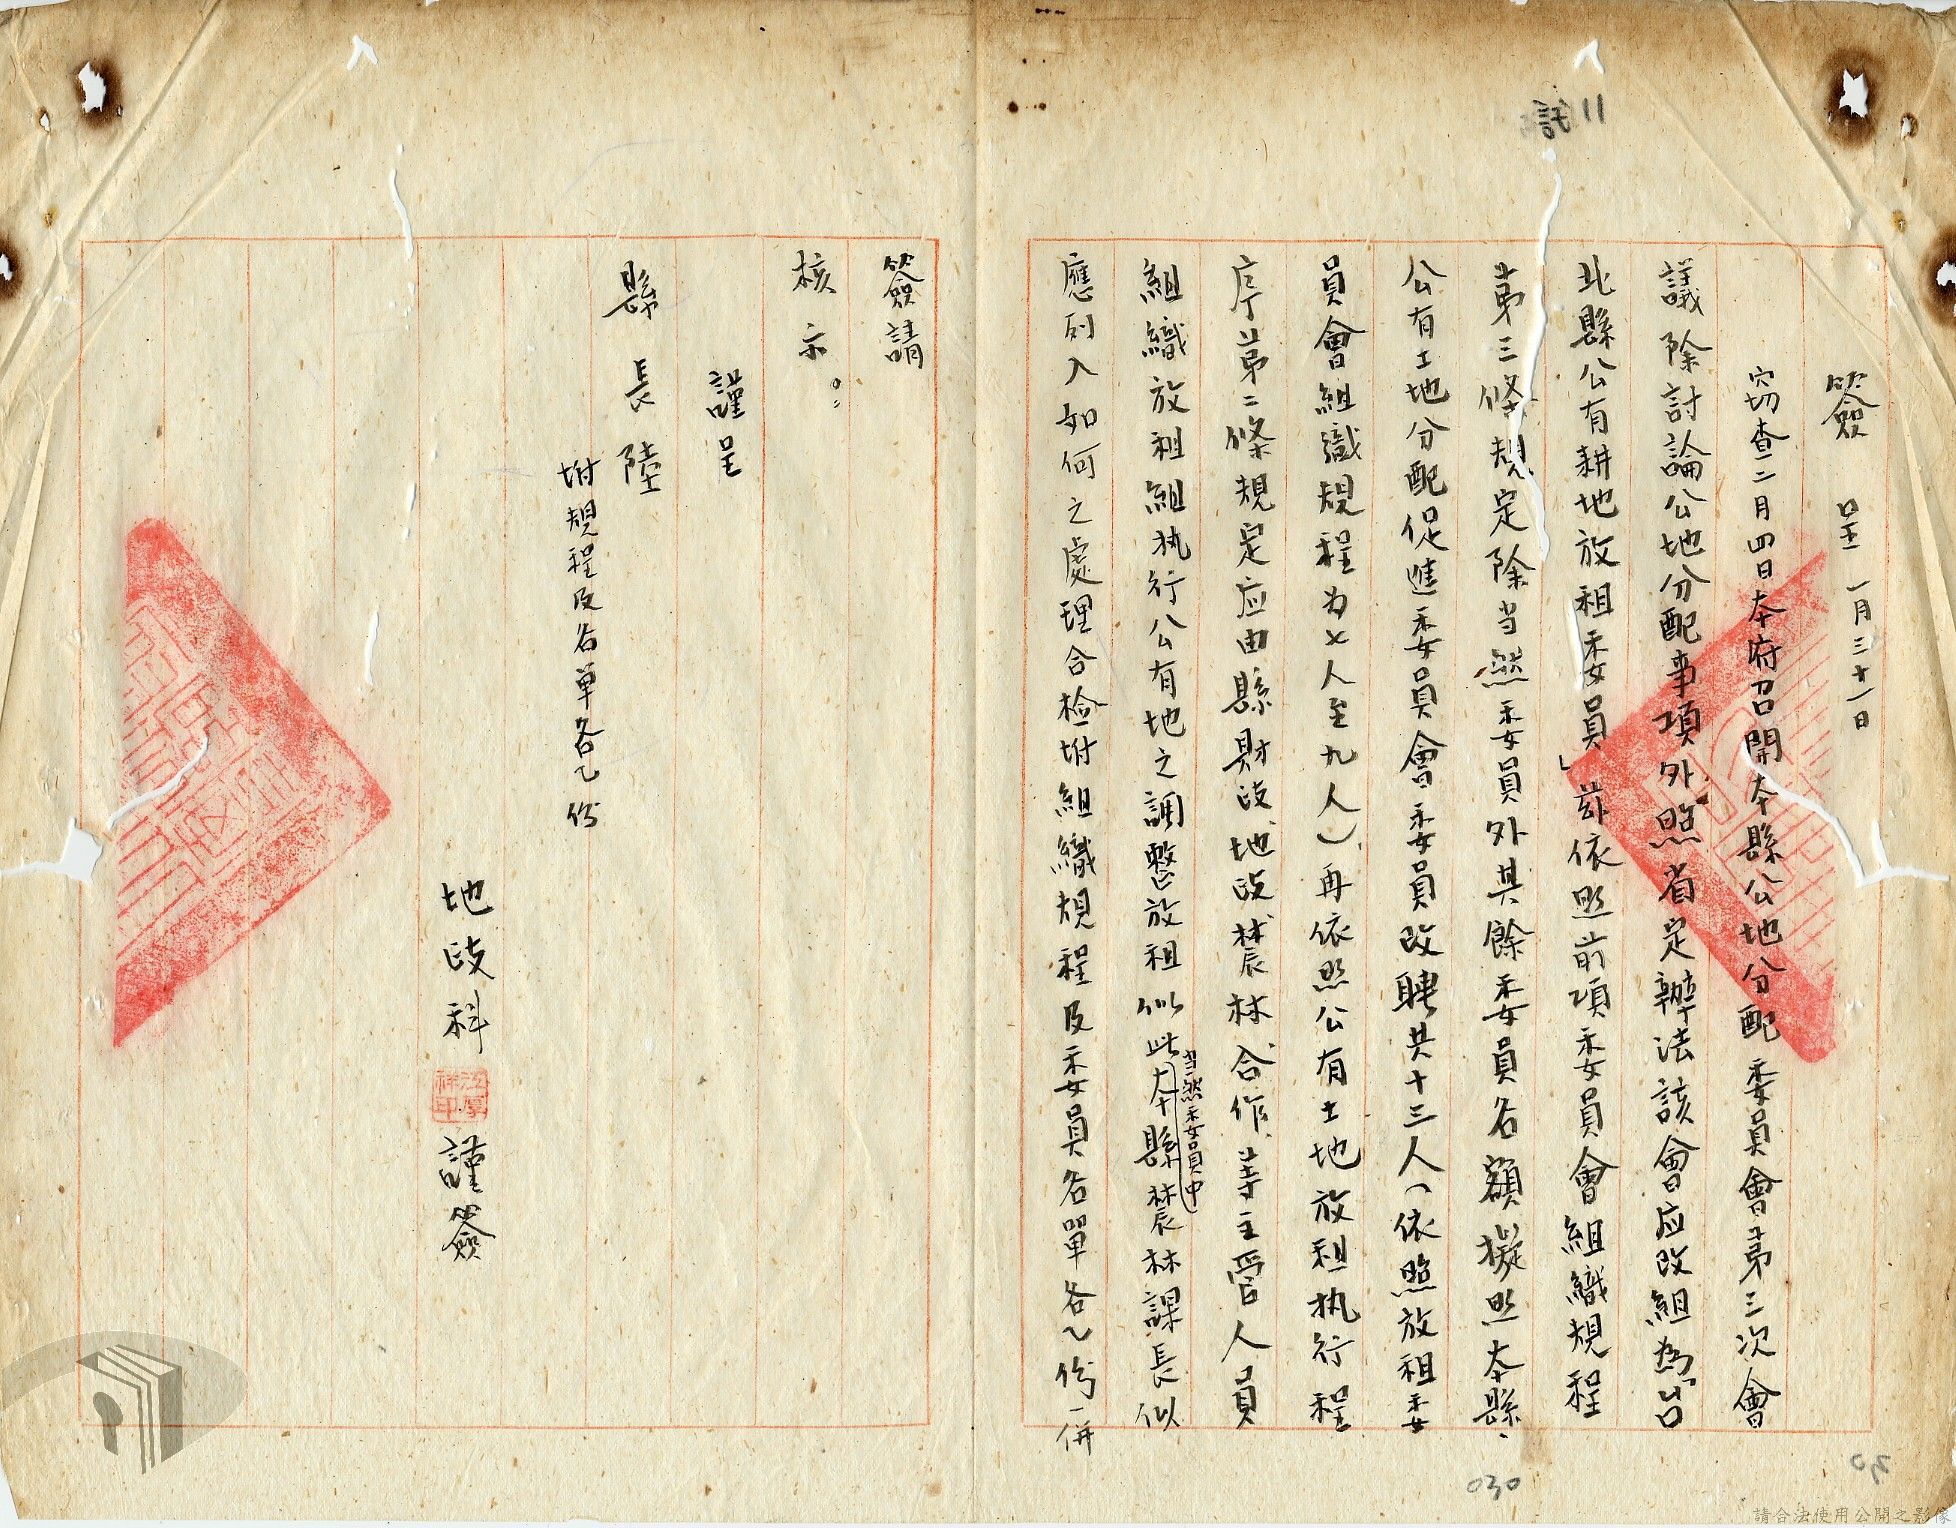 簽呈 一月三十一日
窃查二月四日本府召開本縣公地分配委員會第三次會
議除討論公地分配事項外照省定辦法該會应改組為「台
北縣公有耕地放租委員」茲依照前項委員會組織規程
第三條規定除当然委員外其餘委員名額擬照本縣、
公有土地分配促進委員會委員改聘共十三人（依照放租委
員會組織規程为七人至九人）再依照公有土地放租执行程
序第二條規定应由縣財政、地政、農林、合作、等主管人員
組織放租組执行公有地之調整放租似此当然委員中本縣農林課長似
應列入如何之處理合檢坿組織規程及委員名單各乙份一併
簽請
核示。
謹呈
縣長陸
坿規程及名單各乙份
地政科 謹簽
030
請合法使用公開之影像